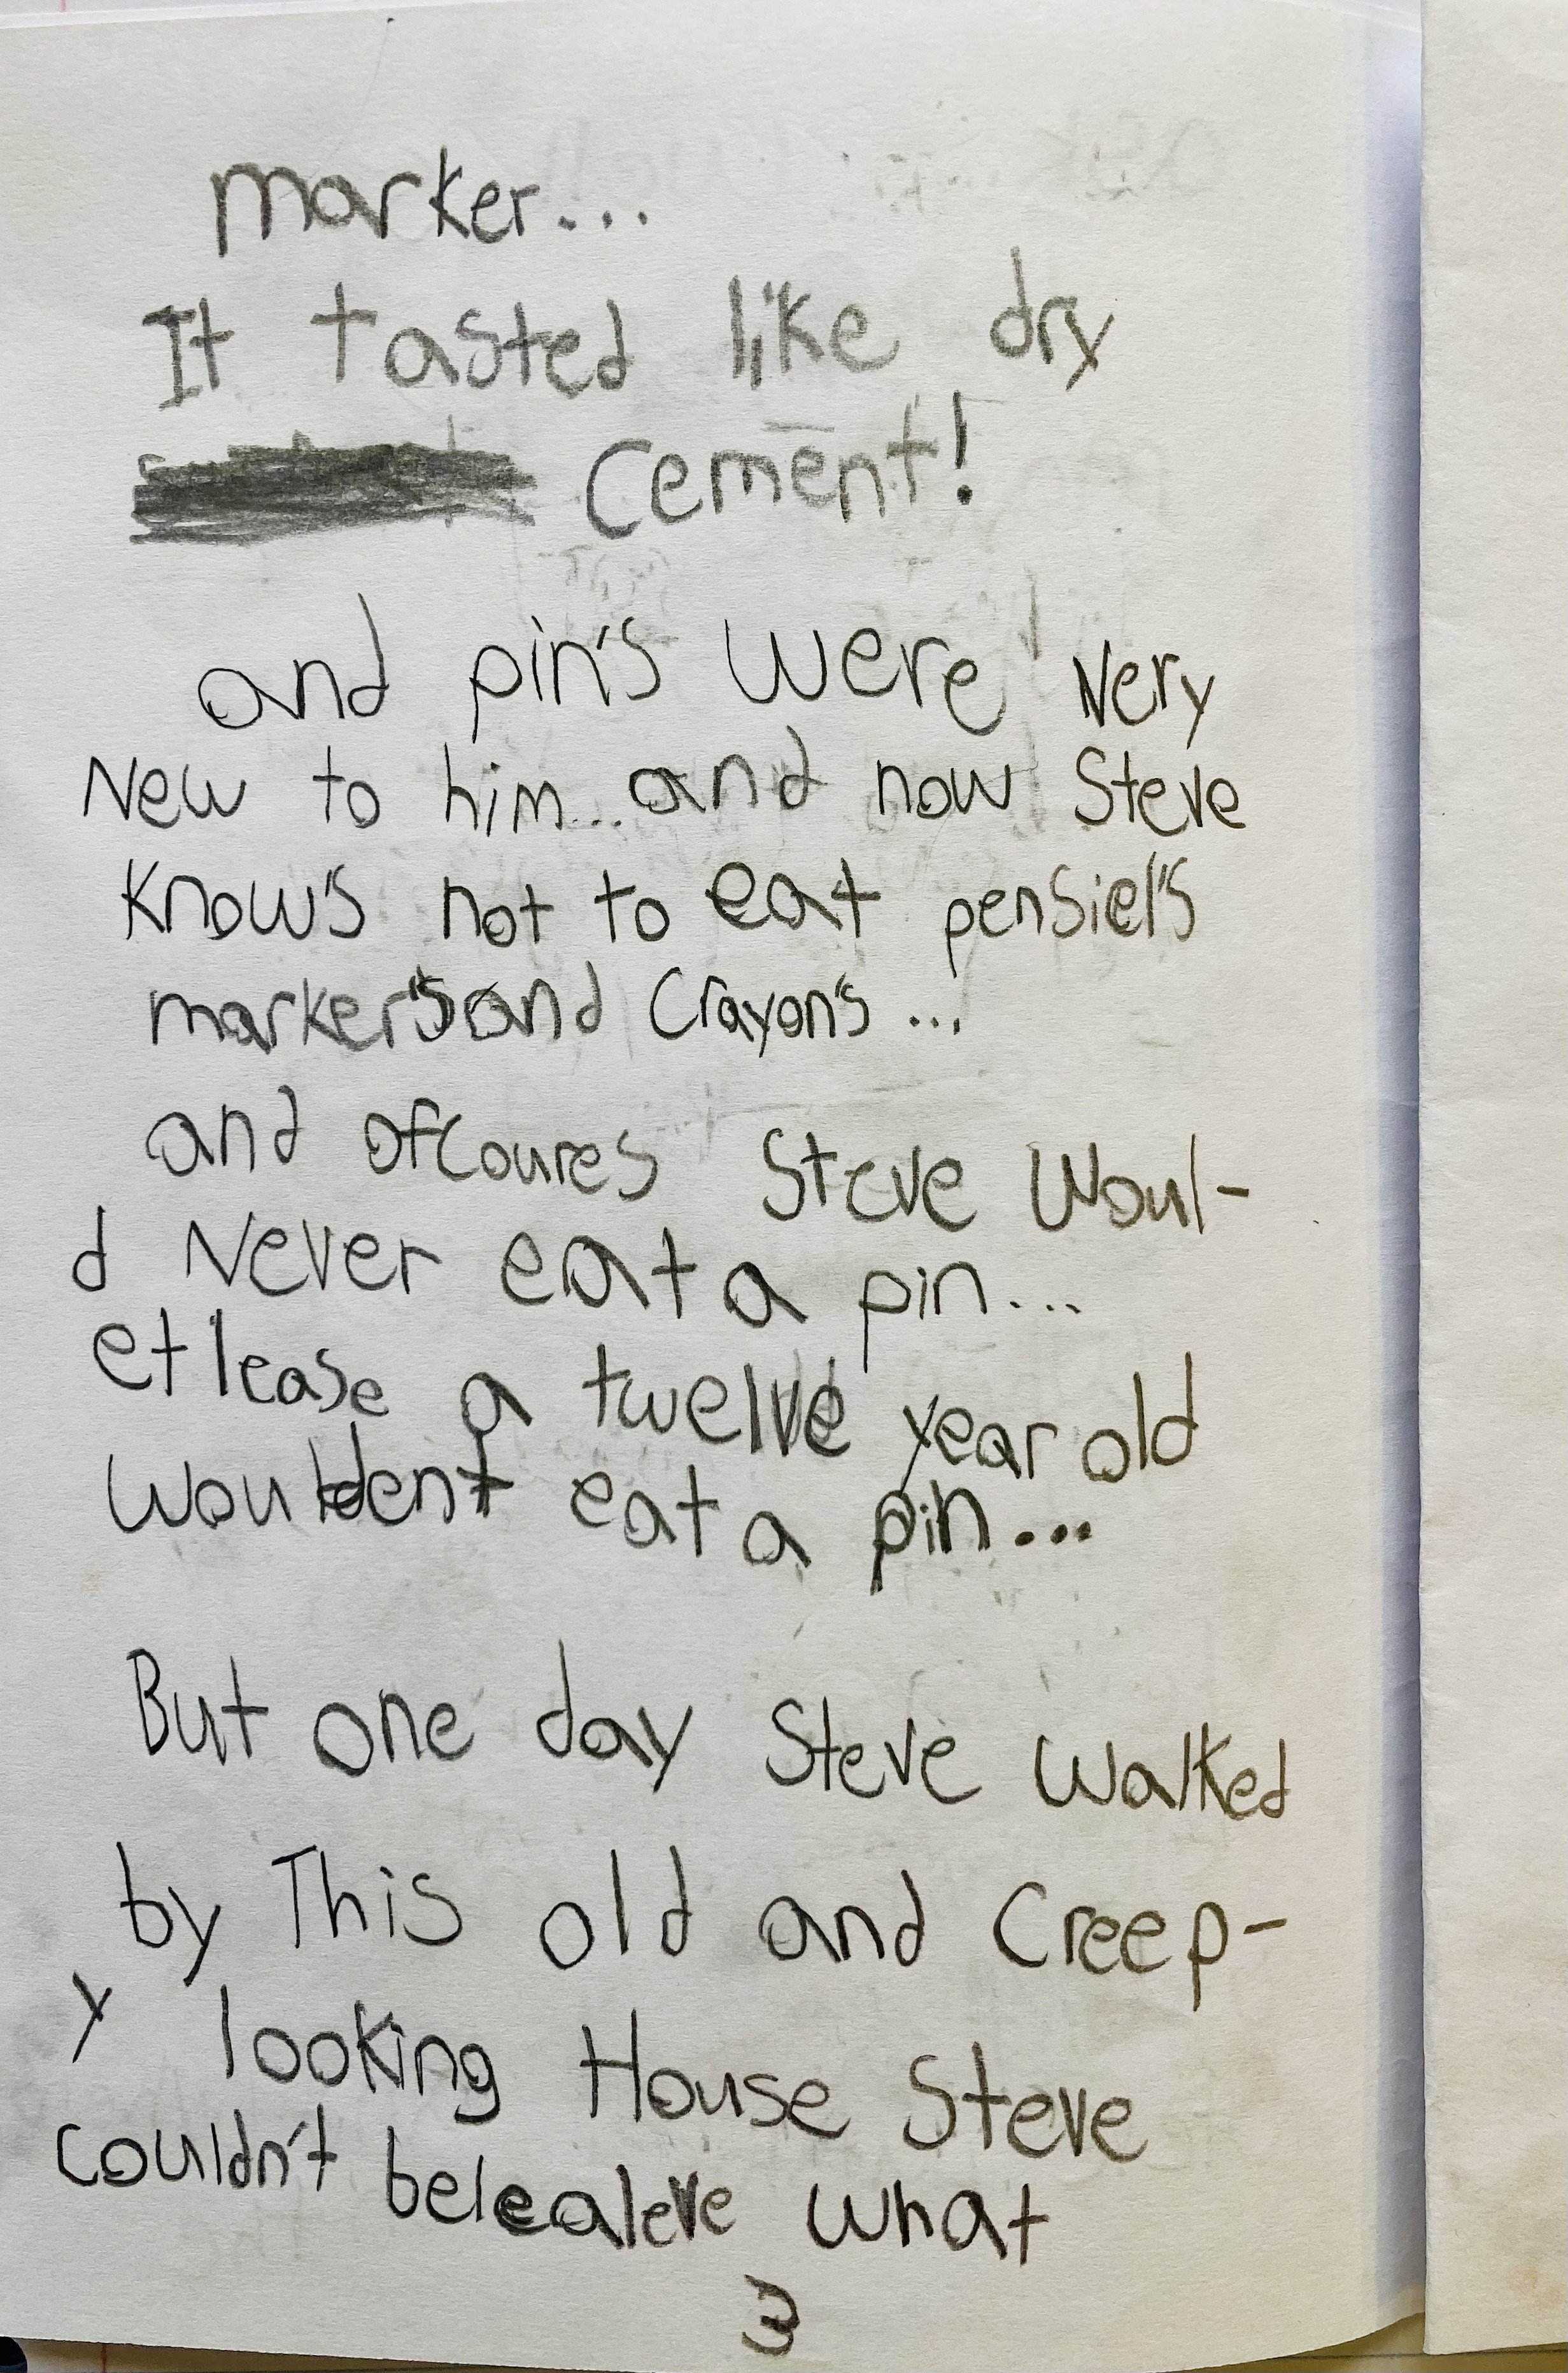 marker...
It tasted like dry
Cement!
and pin's were very
New to him... and now Steve
Know's not to eat pensiel's
marker's and Crayon's ...
and ofcoures Steve Woul-
d Never eat a pin...
et lease a twelve year old
wouldent eat a pin...
But one day Steve Walked
by This old and Creep-
y looking House Steve
couldn't beleealeve what
3